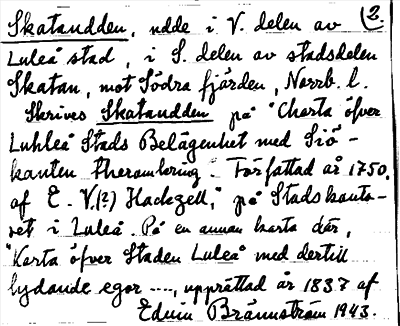 Skatandden, udde i V. delen av (2.
Luleå stad, i S. delen av stadsdelen
Skatan, mot Södra fjärden, Norrb. l.
Skrives Skatandden på "Charta öfver
Luhleå Stads Belägenhet med Siö-
kanten theromkring. Författad år 1750,
af E. V.(?) Hackzell," på Stadskonto-
ret i Luleå. På en annan karta där,
"Karta öfver Staden Luleå med dertill
lydande egor ----, upprättad år 1837 af
Edvin Brännström 1943.